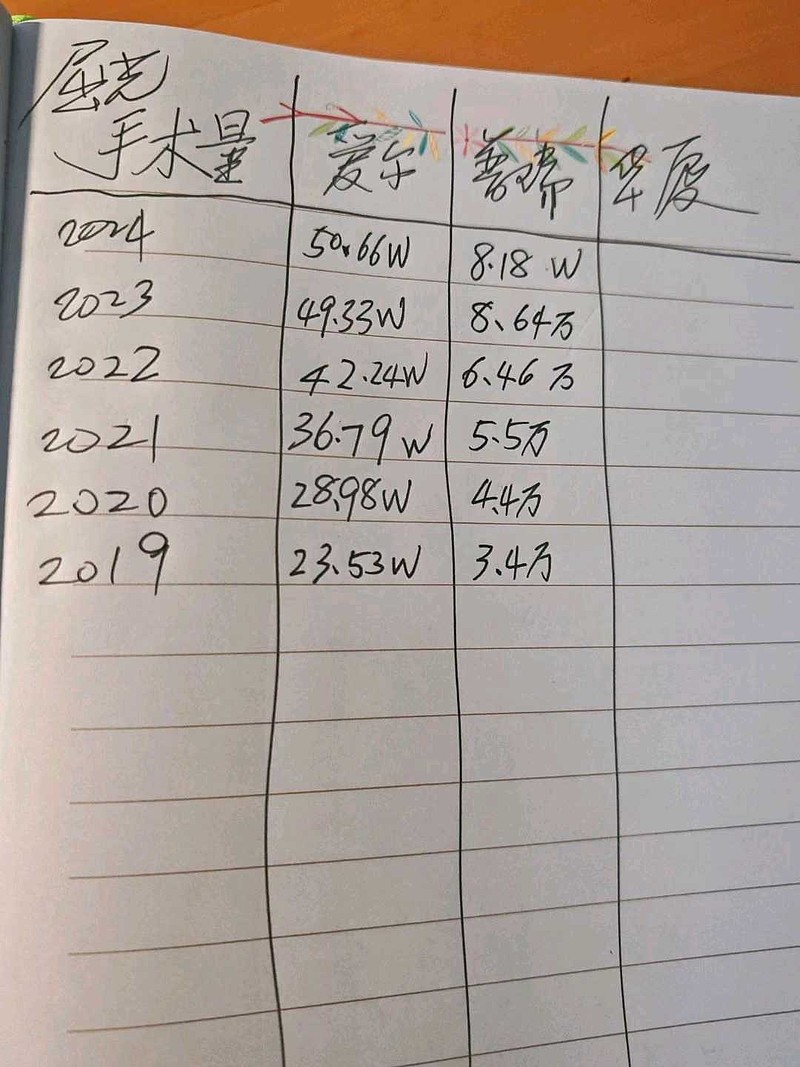 屈光
手术量 爱尔 普瑞 华厦
2024 50.66W 8.18 W
2023 49.33W 8.64万
2022 42.24W 6.46万
2021 36.79W 5.5万
2020 28.98W 4.4万
2019 23.53W 3.4万